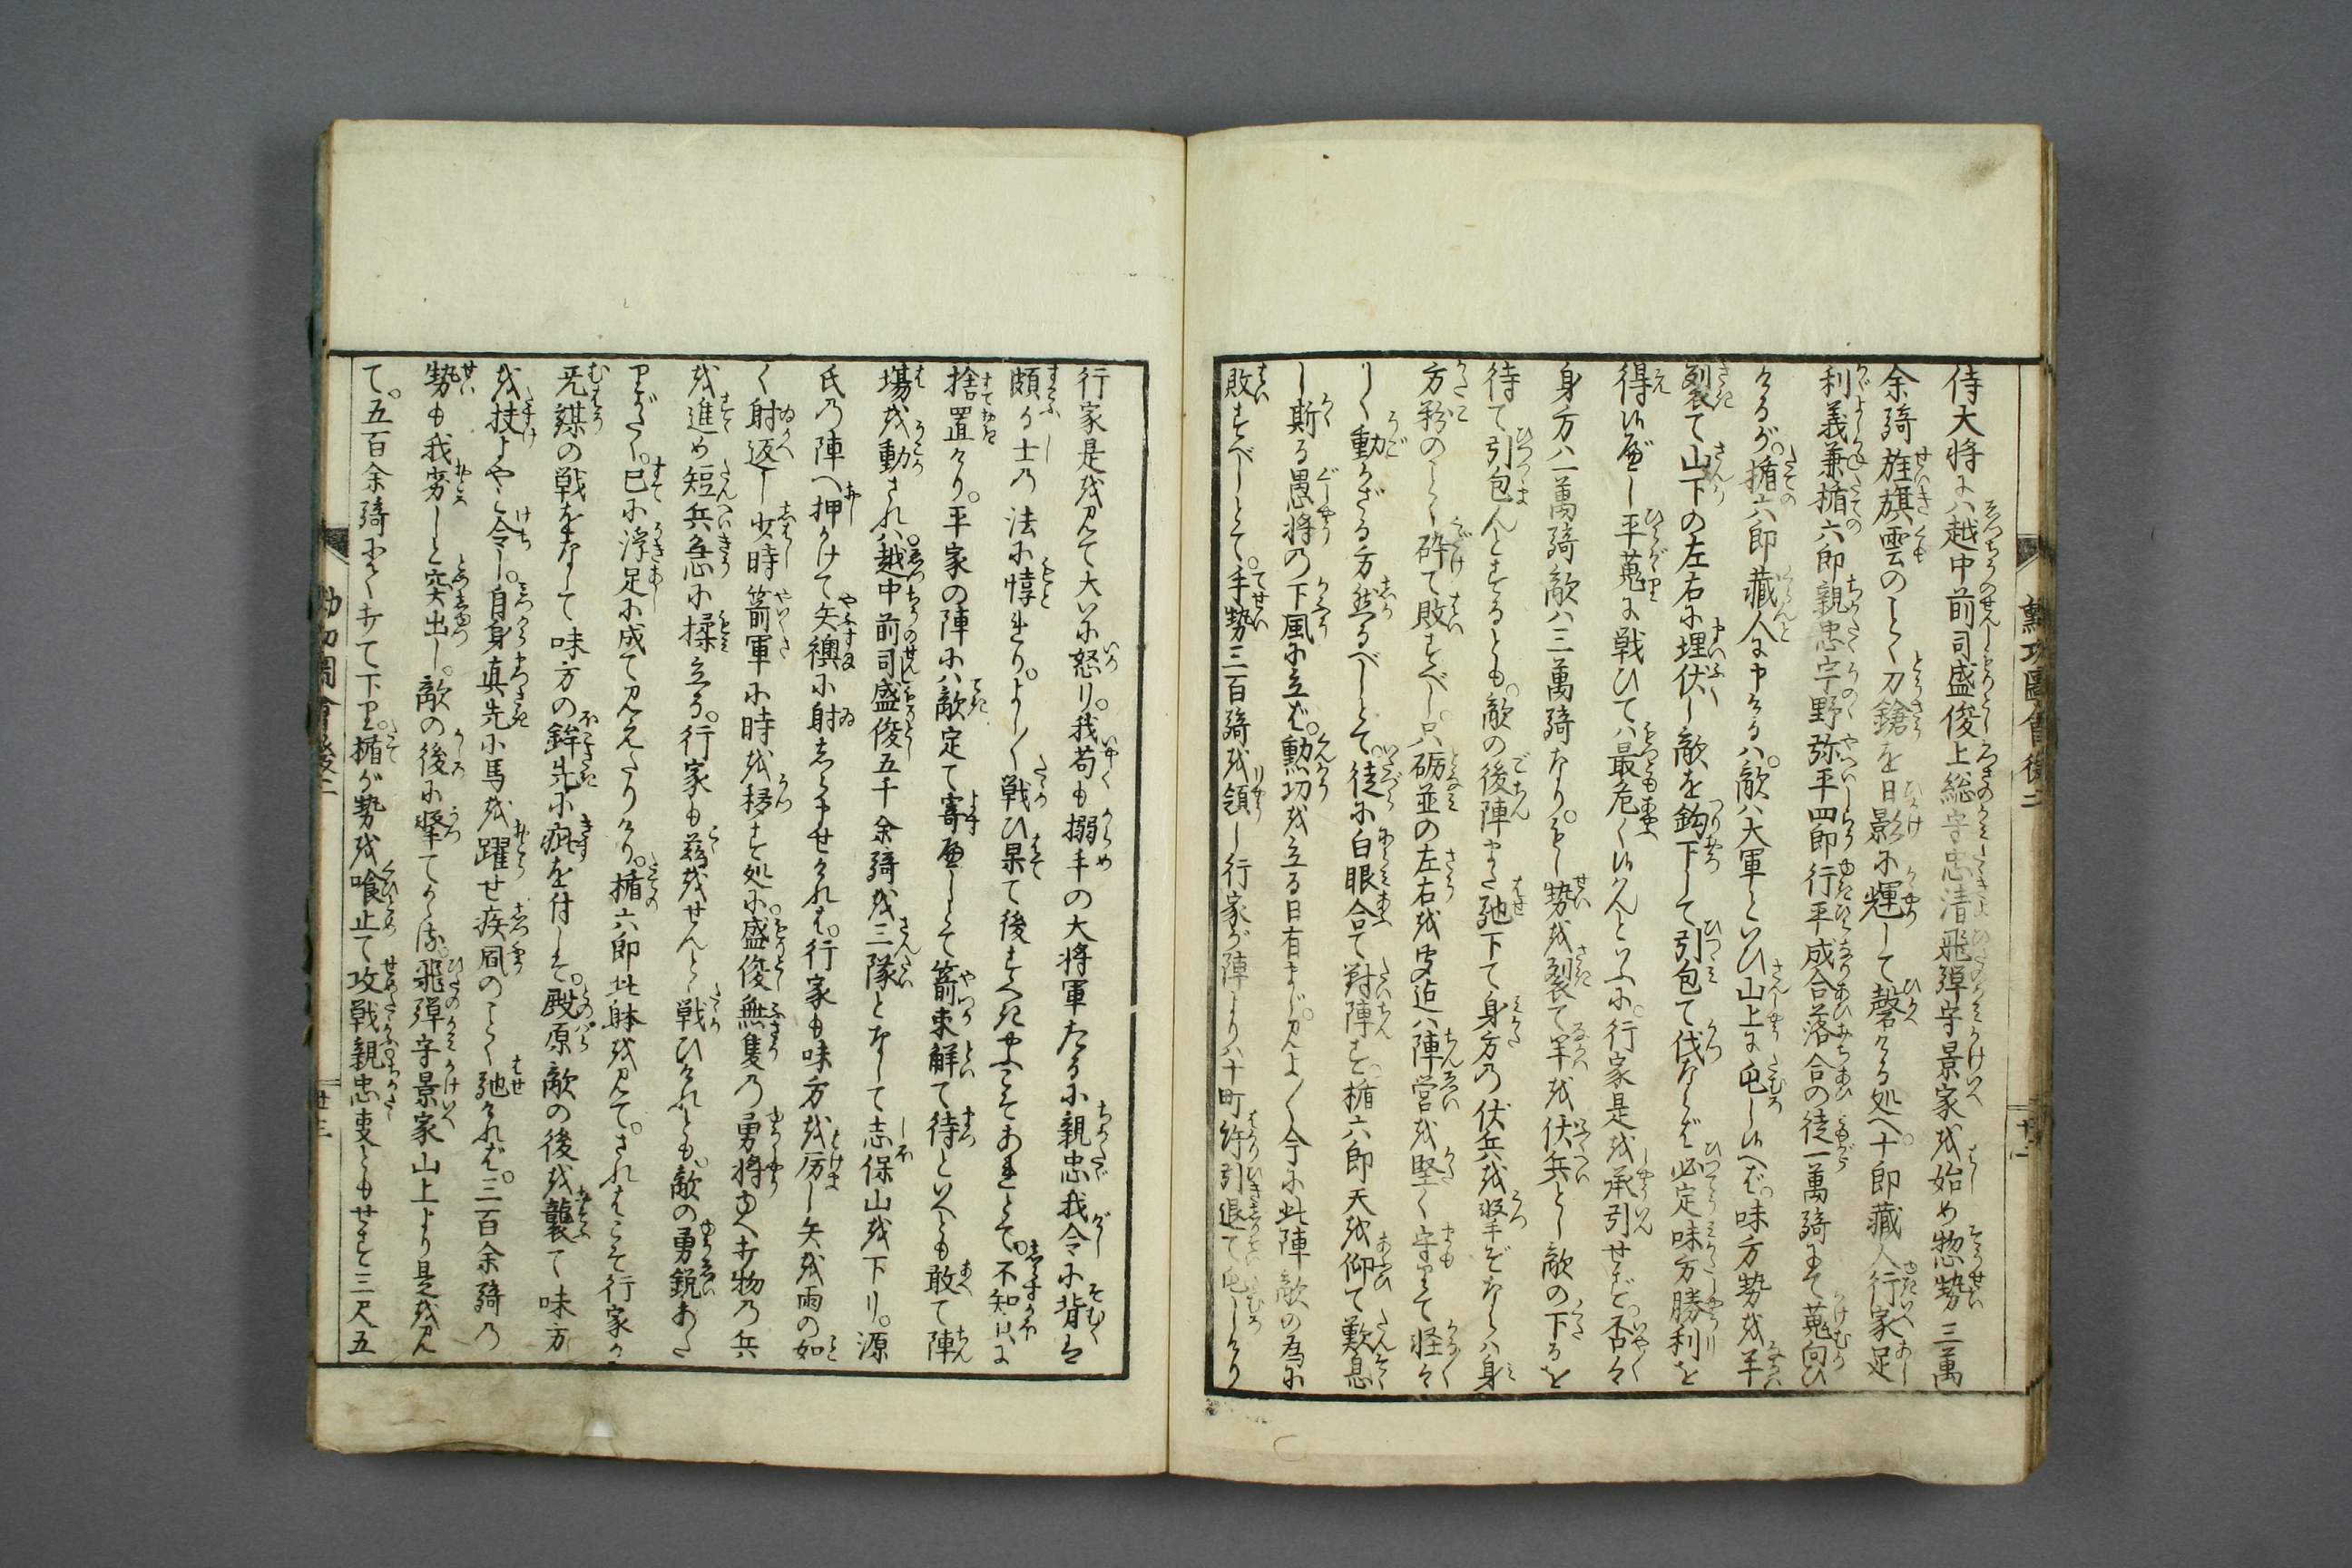 侍大将には越中前司盛俊上総守忠清飛騨守景家を始め惣勢三萬
余騎旌旗雲のごとく刀鎗を日影に輝して磬ける処へ十郎蔵人行家足
利義兼楯六郎親忠宇野弥平四郎行平成合落合の徒一萬騎にて蒐向ひ
けるが楯六郎蔵人に申けるハ敵ハ大軍といひ山上に屯し候へバ味方勢を半
裂て山下の左右に埋伏し敵を鈎下して引包て伐ならバ必定味方勝利を
得候べし平蒐に戦ひてハ最危く候はんといふに行家是を承引せず否々
身方ハ一萬騎敵ハ三萬騎なりもし勢を裂て半を伏兵とし敵の下るを
待て引包んとするとも敵の後陣また馳下て身方の伏兵を撃ぞならハ身
方粉のごとく砕て敗すべし只砺並の左右を
陣営を堅く守りて軽々
しく動かざる方然るべしとて徒に白眼合て対陣す楯六郎天を仰て歎息
し斯る愚将の下風に立ば勲功を立る日有まじ見よ／＼今に此陣敵の為に
敗すべしとて手勢三百騎を領し行家が陣より八十町許引退て屯しけり
行家是を見て大に怒り我苟も搦手の大将軍たるに親忠我令に背き
頗る士の法に悖れりよし／＼戦ひ果て後すべきやうこそあれとて不知火に
捨置けり平家の陣にハ敵定て寄べしとて箭束解て待といへども敢て陣
場を動されハ越中前司盛俊五千余騎を三隊となして志保山を下り源
氏の陣へ押かけて矢襖に射しらませけれバ行家も味方を励し矢を雨の如
く射返し少時箭軍に時を移す処に盛俊無隻の勇将ゆへ打物の兵
を進め短兵急に揉立る行家も爰をせんと戦ひけれども敵の勇鋭あた
りがたく已に浮足に成て見えたりけり楯六郎此体を見てさればこそ行家が
无謀の戦をなして味方の鉾先に疵を付しぞ殿原敵の後を襲て味方
を扶よやと令し自身真先に馬を躍せ疾風のごとく馳けれバ三百余騎の
勢も我劣しと突出し敵の後に撃てかゝる飛騨守景家山上より是を見
て五百余騎にて打て下り楯が勢を喰止て攻戦親忠事ともせず三尺五